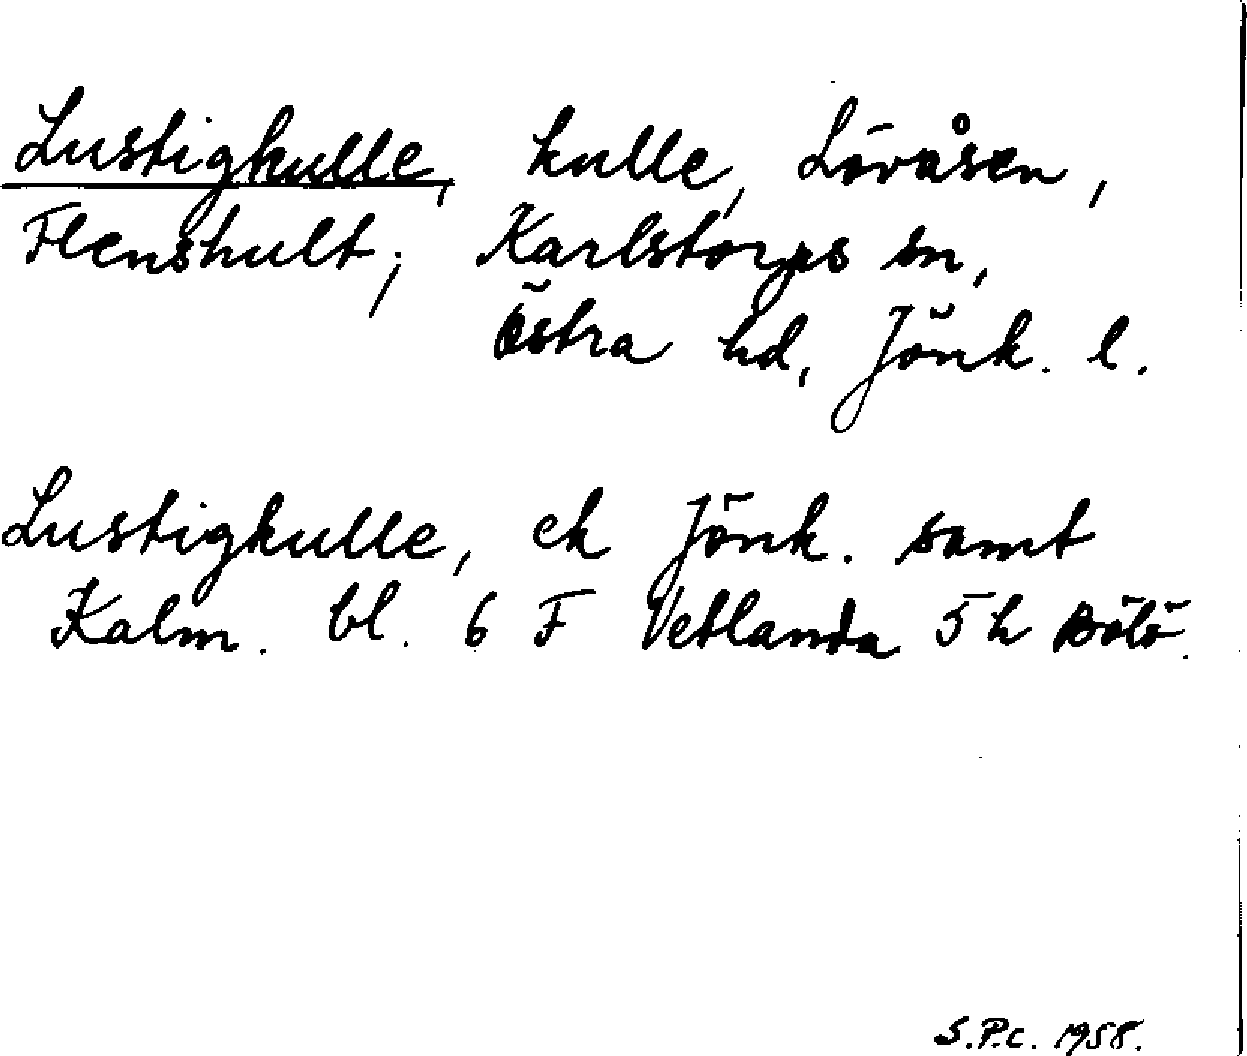 Lustigkulle, kulle, Lövåsen,
Flenshult, Karlstorps sn,
Östra hd, Jönk. l.
Lustigkulle, ek Jönk. samt
Kalm. bl. 6 F Vetlanda 5 h Bölö.
S.P.c. 1958.